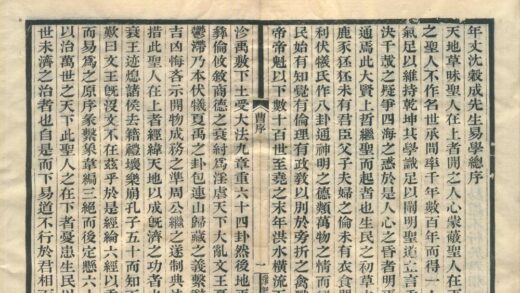 年丈沈穀成先生易學總序
天地草昧聖人在上者開之人心蒙蔽聖人在下
之聖人不作名世承間率千年數百年而得一
氣足以維持乾坤其學識足以闡明聖道立言垂
決千載之疑爭四海之惑於是人心之昏者明
通焉此大賢上哲繼聖而起者也生民之初草
鹿豕狉狉未有君臣父子夫婦之倫未有衣食
利伏犧氏作八卦通神明之德類萬物之情而
民始有知覺有倫理有政教以別於旁折之禽
帝帝魁以下數十百世至堯之末年洪水橫流
曹序
一
沴禹敷下土受大法九章重六十四卦然後地平
彝倫攸敘商德之衰紂爲淫虐天下大亂文王
鬱滯乃本伏犧夏禹之卦包連山歸藏之義繫
吉凶悔吝示開物成務之準周公繼之遂制典
措此聖人在上者經緯天地以成旣濟之功者也
衰王迹熄諸侯去籍禮壞樂崩孔子五十而知
歎曰文王旣沒文不在茲乎於是經綸六經以
而易爲之原序彖繫象韋編三絕而後定懸六
以治萬世之天下此聖人之在下者憂患生民以
世未濟之治者也自是而下易道不行於君相